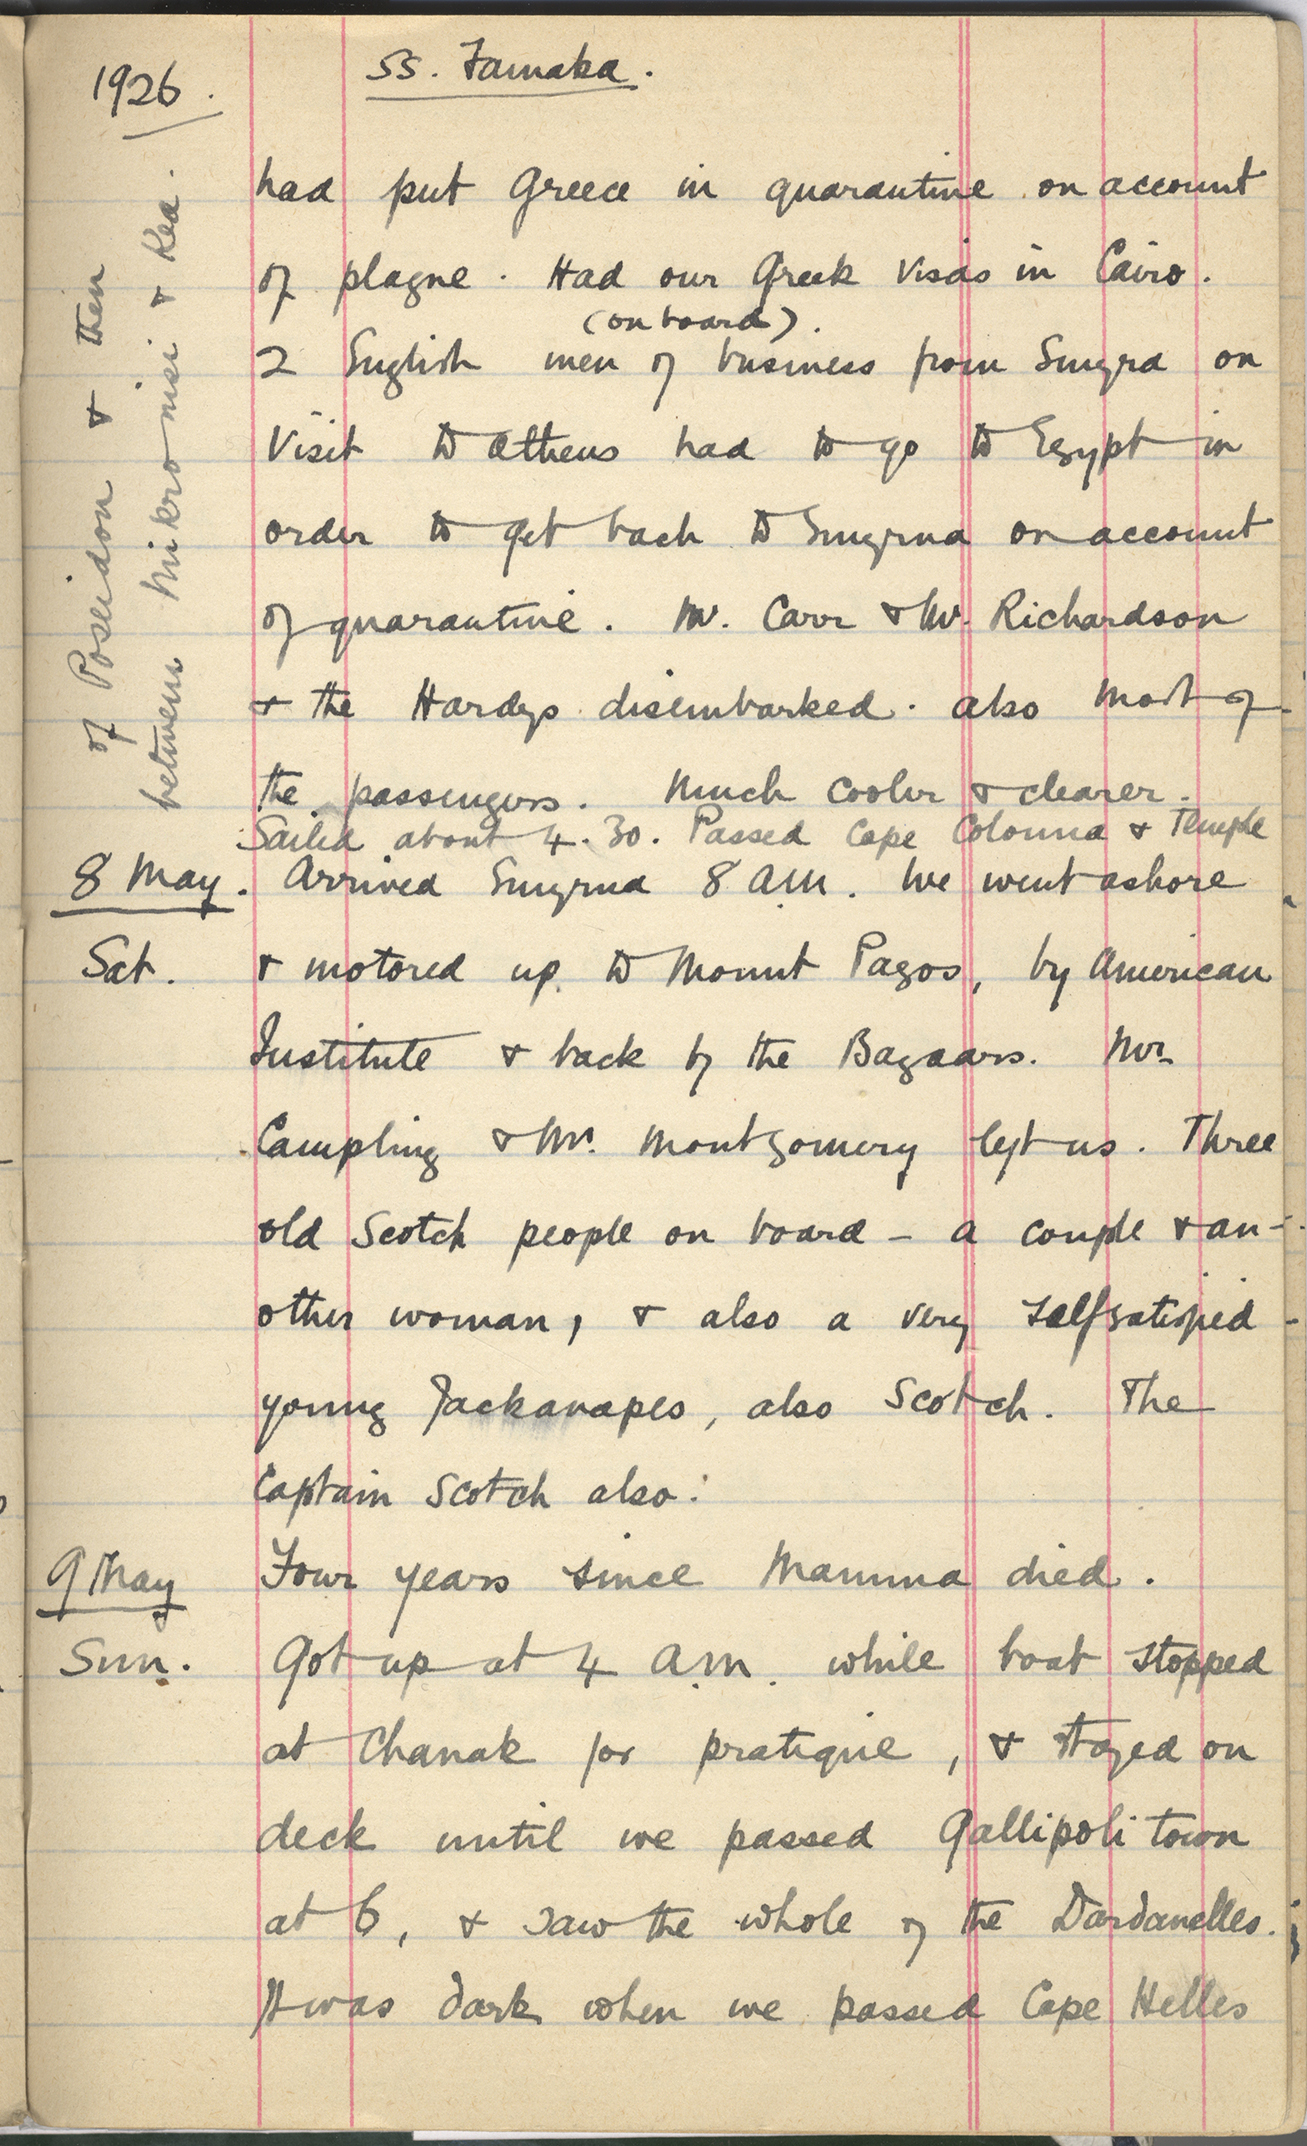 1926.
SS. Famaka.
had put Greece in quarantine on account
of plague. Had our Greek visas in Cairo.
(on board).
2 English men of business from Smyrna on
visit to Athens had to go to Egypt in
order to get back to Smyrna on account
of quarantine. Mr. Carr & Mr. Richardson
& the Hardys disembarked. also most of
the passengers. Much cooler & clearer.
Sailed about 4.30. Passed Cape Colonna & Temple
of Poseidon & then
between Mikronisi & Kea.
8 May. Arrived Smyrna 8 am. We went ashore
Sat. & motored up to Mount Pagos, by American
Institute & back by the Bazaars. Mr.
Campling & Mr. Montgomery left us. Three
old Scotch people on board - a couple & an-
other woman, & also a very selfsatisfied
young Jackanapes, also Scotch. The
Captain Scotch also.
9 May Four years since Mamma died.
Sun. Got up at 4 a.m. while boat stopped
at Chanak for pratique, & stayed on
deck until we passed Gallipoli town
at 6, & saw the whole of the Dardanelles.
It was dark when we passed Cape Helles